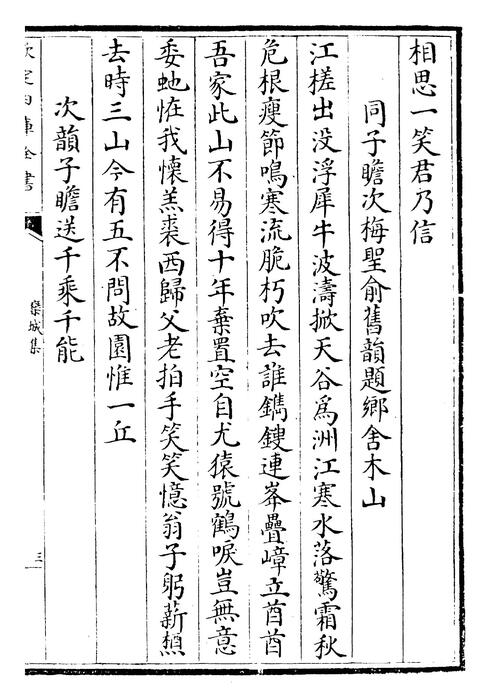 相思一笑君乃信
同子瞻次梅聖俞舊韻題鄉舍木山
江槎出没浮犀牛波濤掀天谷爲洲江寒水落驚霜秋
危根瘦節鳴寒流脆朽吹去誰鐫鎪連峯疊嶂立酋酋
吾家此山不易得十年棄置空自尤猿號鶴唳豈無意
委虵恠我懷羔裘西歸父老拍手笑笑憶翁子躬薪想
去時三山今有五不問故園惟一丘
次韻子瞻送千乘千能
欽定四庫全書
欒城集
三